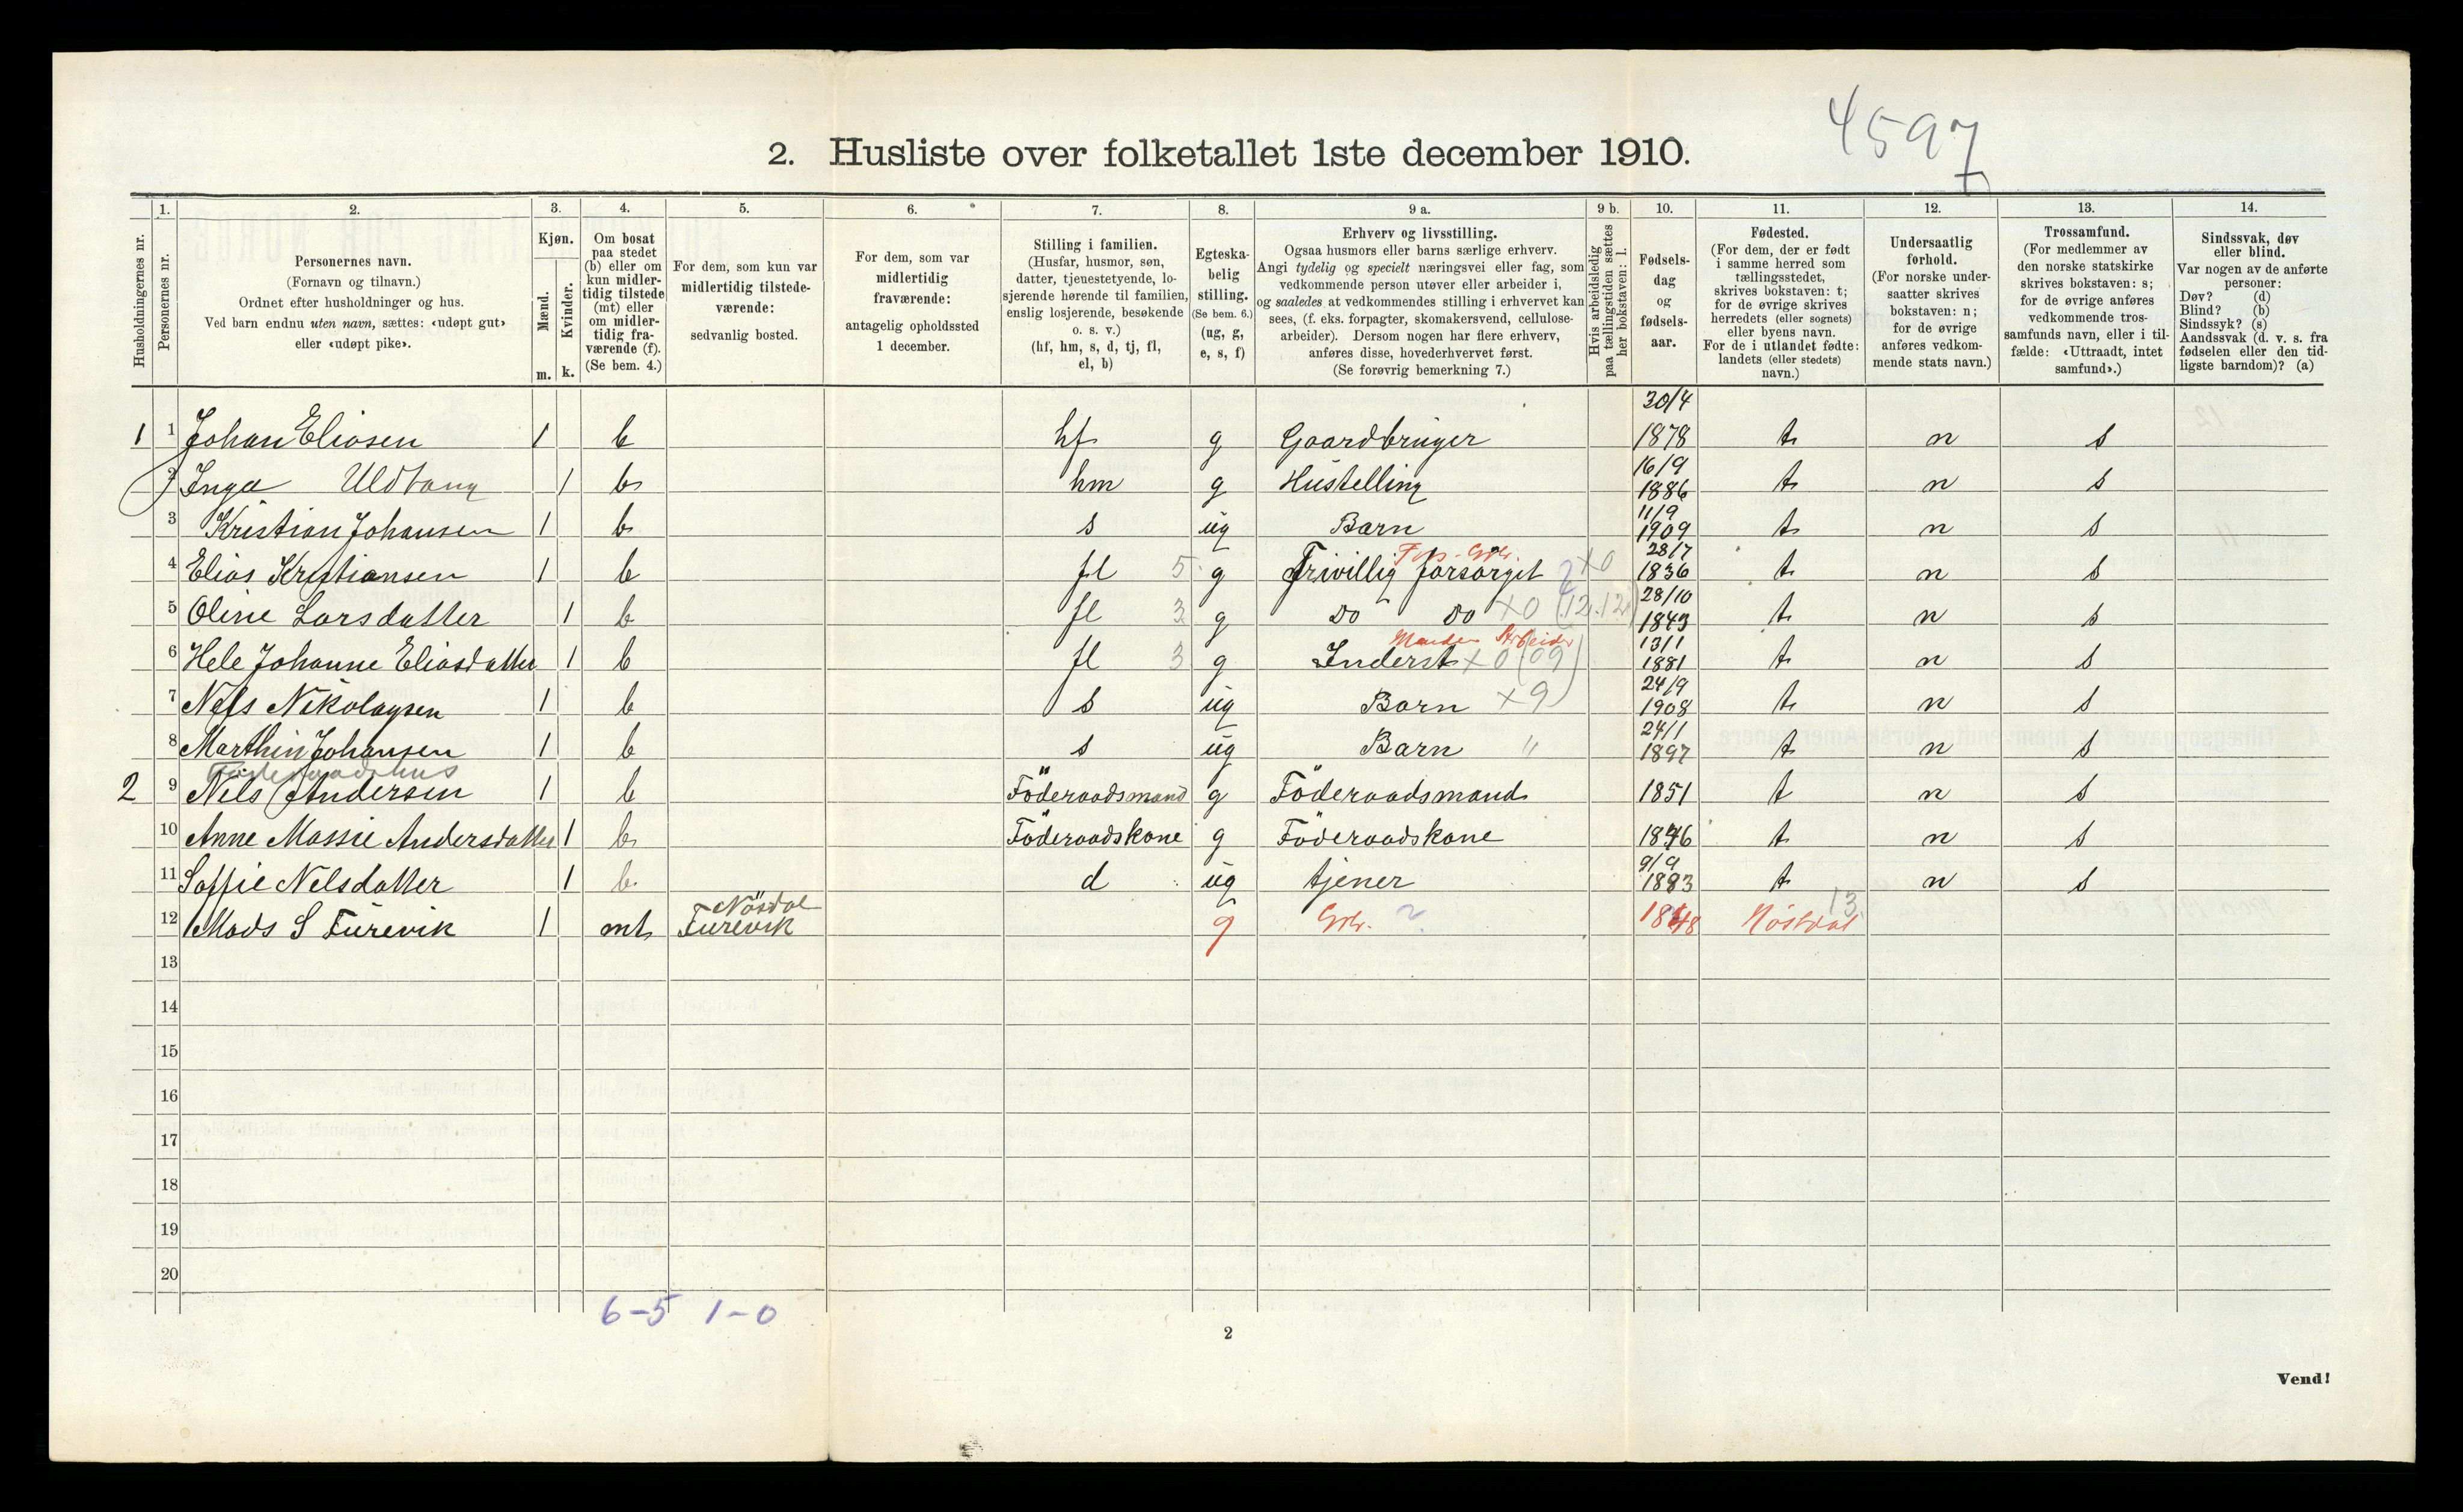 4597
2. Husliste over folketallet 1ste december 1910.
Husholdningernes nr.
1.
Personernes nr.
2.
Personernes navn.
(Fornavn og tilnavn.)
Ordnet efter husholdninger og hus.
Ved barn endnu uten navn, sættes: «udøpt gut»
eller «udøpt pike».
3.
Kjøn.
Mænd.
Kvinder.
m. k.
4.
Om bosat
paa stedet
(b) eller om
kun midler-
tidig tilstede
(mt) eller
om midler-
tidig fra-
værende (f).
(Se bem. 4.)
5.
For dem, som kun var
midlertidig tilstede-
værende:
sedvanlig bosted.
6.
For dem, som var
midlertidig
fraværende:
antagelig opholdssted
1 december.
7.
Stilling i familien.
(Husfar, husmor, søn,
datter, tjenestetyende, lo-
sjerende hørende til familien,
enslig losjerende, besøkende
o. s. v.)
(hf, hm, s, d, tj, fl,
el, b)
8.
Egteska-
belig
stilling.
(Se bem. 6.)
(ug, g,
e, s, f)
9 a.
Erhverv og livsstilling.
Ogsaa husmors eller barns særlige erhverv.
Angi tydelig og specielt næringsvei eller fag, som
vedkommende person utøver eller arbeider i,
og saaledes at vedkommendes stilling i erhvervet kan
sees, (f. eks. forpagter, skomakersvend, cellulose-
arbeider). Dersom nogen har flere erhverv,
anføres disse, hovederhvervet først.
(Se forøvrig bemerkning 7.)
9 b.
Hvis arbeidsledig
paa tællingstiden sættes
her bokstaven: l.
10.
Fødsels-
dag
og
fødsels-
aar.
11.
Fødested.
(For dem, der er født
i samme herred som
tællingsstedet,
skrives bokstaven: t;
for de øvrige skrives
herredets (eller sognets)
eller byens navn.
For de i utlandet fødte:
landets (eller stedets)
navn.)
12.
Undersaatlig
forhold.
(For norske under-
saatter skrives
bokstaven: n;
for de øvrige
anføres vedkom-
mende stats navn.)
13.
Trossamfund.
(For medlemmer av
den norske statskirke
skrives bokstaven: s;
for de øvrige anføres
vedkommende tros-
samfunds navn, eller i til-
fælde: «Uttraadt, intet
samfund».)
14.
Sindssvak, døv
eller blind.
Var nogen av de anførte
personer:
Døv? (d)
Blind? (b)
Sindssyk? (s)
Aandssvak (d. v. s. fra
fødselen eller den tid-
ligste barndom)? (a)
1 1 Johan Eliasen 1 b hf g Gaardbruger 30/4 1878 t n s
2 Inga Uldtang 1 b hm g Hustelling 16/9 1886 t n s
3 Kristian Johansen 1 b s ug Barn 11/9 1909 t n s
4 Elias Kristiansen 1 b fl 5 g Frivillig forsørget x0 28/7 1836 t n s
5 Oline Larsdatter 1 b fl 3 g do do x0 (12.12) 28/10 1843 t n s
6 Hele Johanne Eliasdatter 1 b fl 3 g Inderst x0 (09) 13/1 1881 t n s
7 Nels Nikolaysen 1 b s ug Barn x9 24/9 1908 t n s
8 Marthin Johansen 1 b s ug Barn " 24/1 1897 t n s
Föderaadshus
2 9 Nils Andersen 1 b Föderaadsmand g Föderaadsmand 1851 t n s
10 Anne Massie Andersdatter 1 b Föderaadskone g Föderaadskone 1846 t n s
11 Soffie Nelsdatter 1 b d ug tjener 9/9 1883 t n s
12 Mads S Furevik 1 mt Nösdal Furevik g Grbr. ? 1848 Nösdal 13
13
14
15
16
17
18
19
20
6-5 1-0
2
Vend!